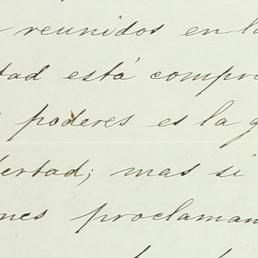 reunidos en la
tad está compro
poderes es la g
ertad; mas si
nes proclaman